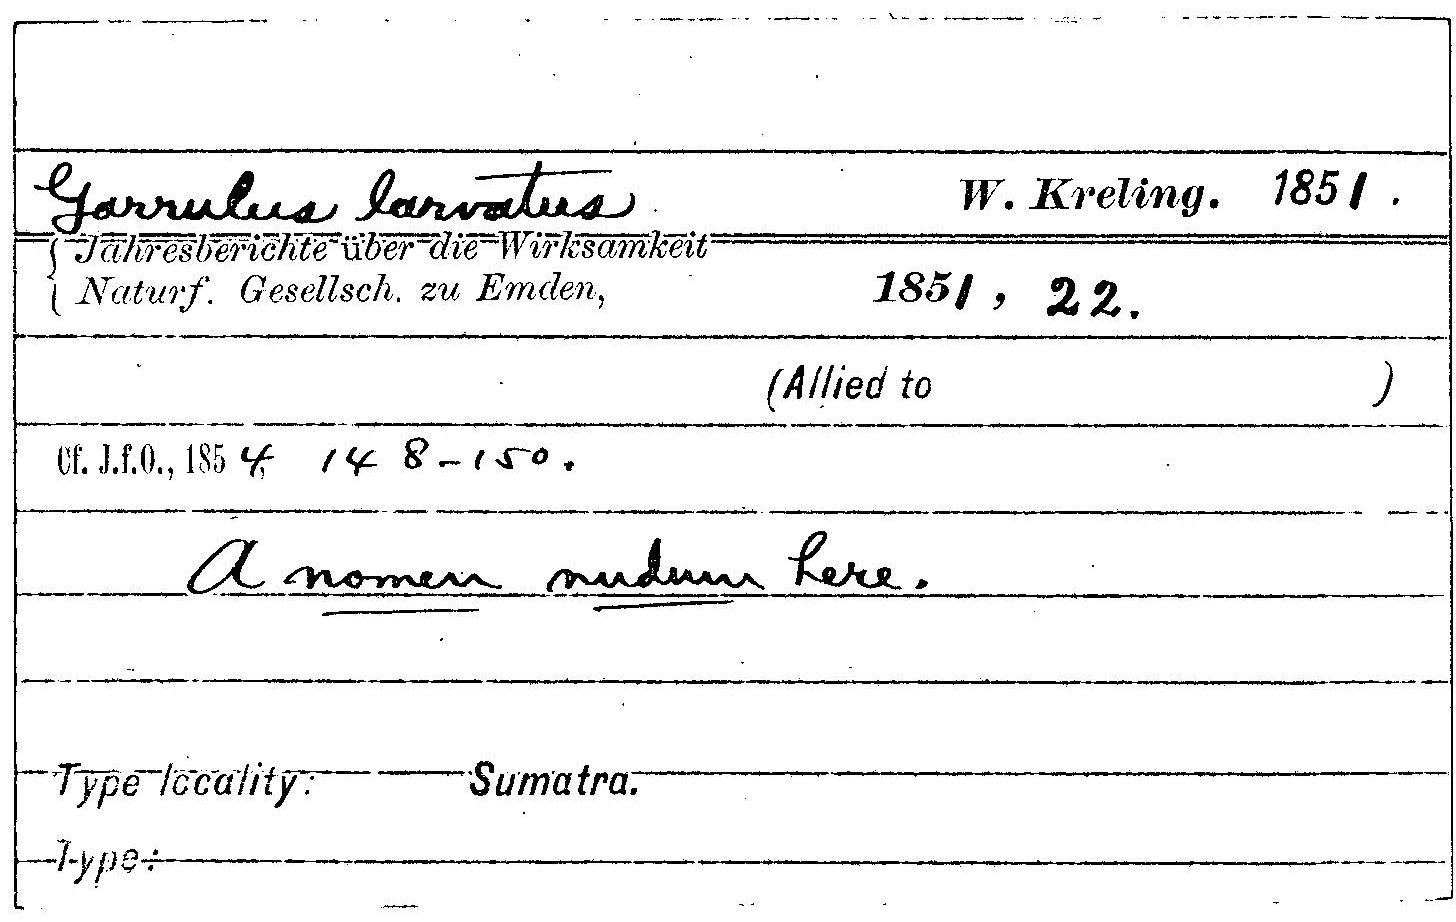 Garrulus larvatus W. Kreling. 1851.
{ Jahresberichte über die Wirksamkeit
{ Naturf. Gesellsch. zu Emden, 1851, 22.
(Allied to )
Cf. J.f.O., 1854, 148-150.
A nomen nudum here.
Type locality: Sumatra.
Type: